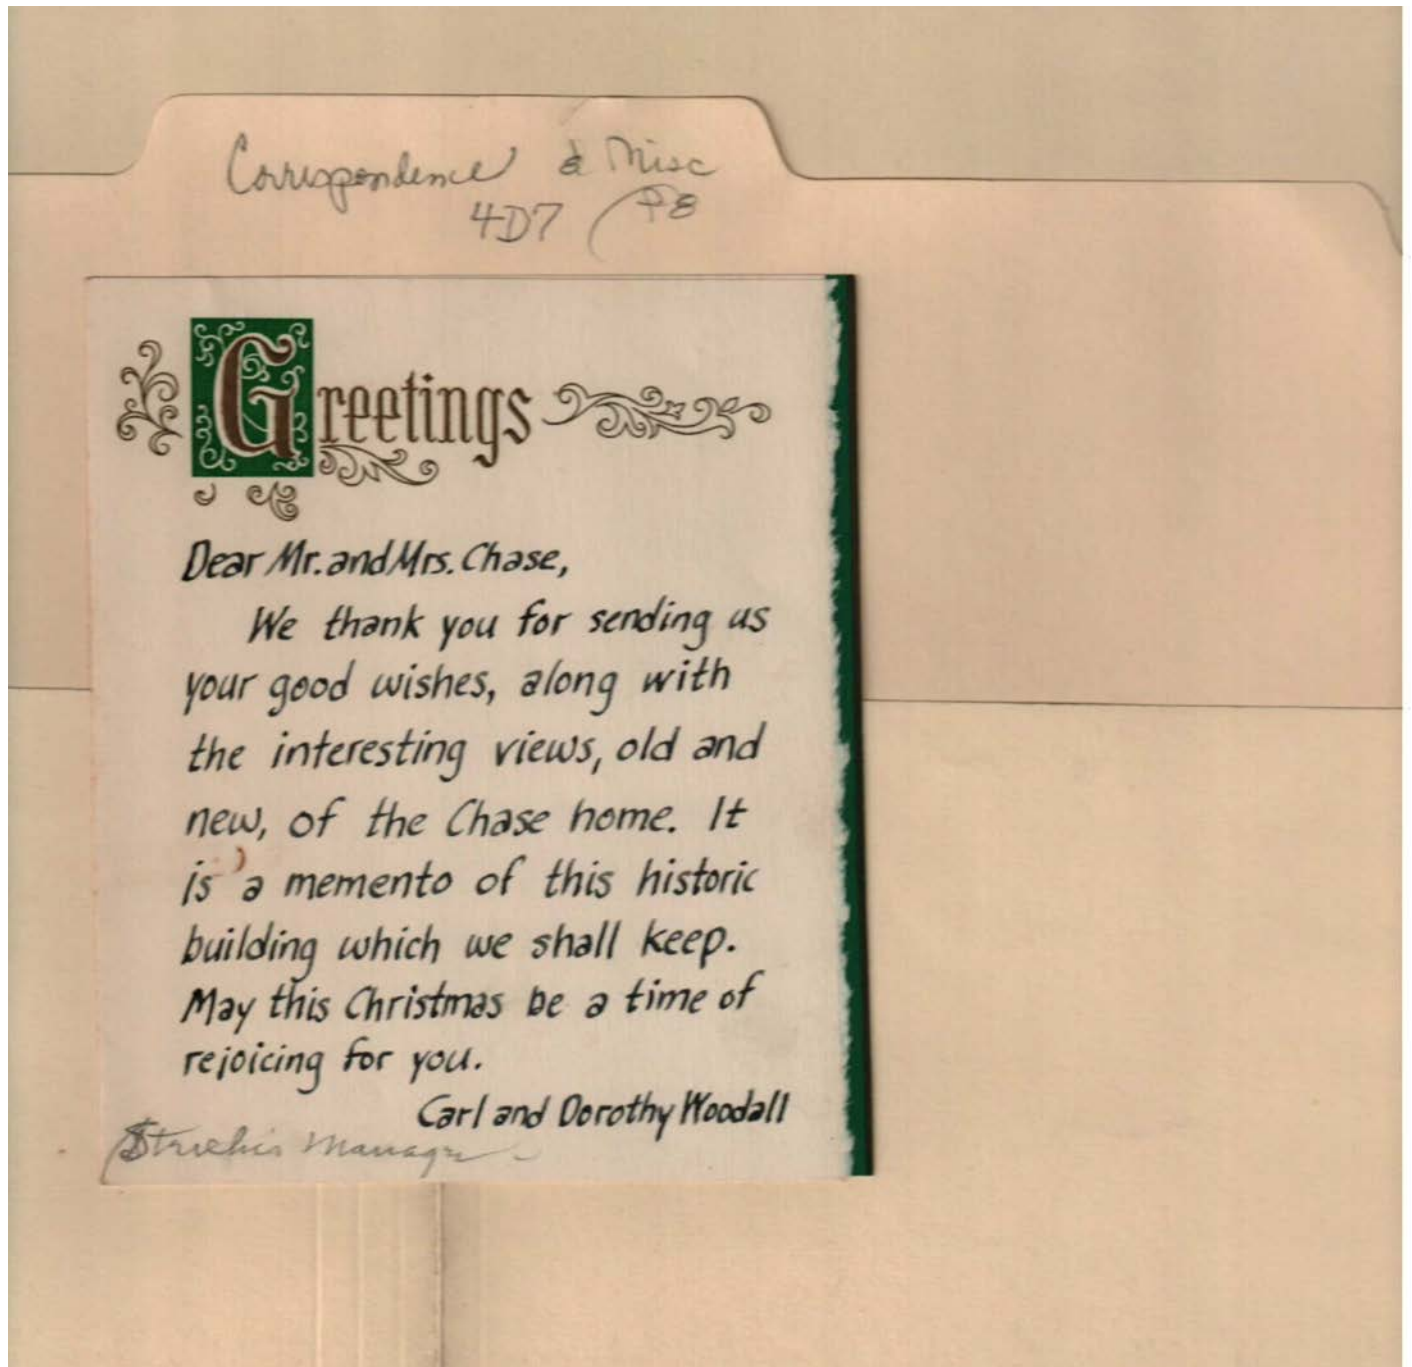 Correspondence & Misc
4D7 P8
Greetings
Dear Mr. and Mrs. Chase,
We thank you for sending us
your good wishes, along with
the interesting views, old and
new, of the Chase home. It
is a memento of this historic
building which we shall keep.
May this Christmas be a time of
rejoicing for you.
Carl and Dorothy Woodall
Manager